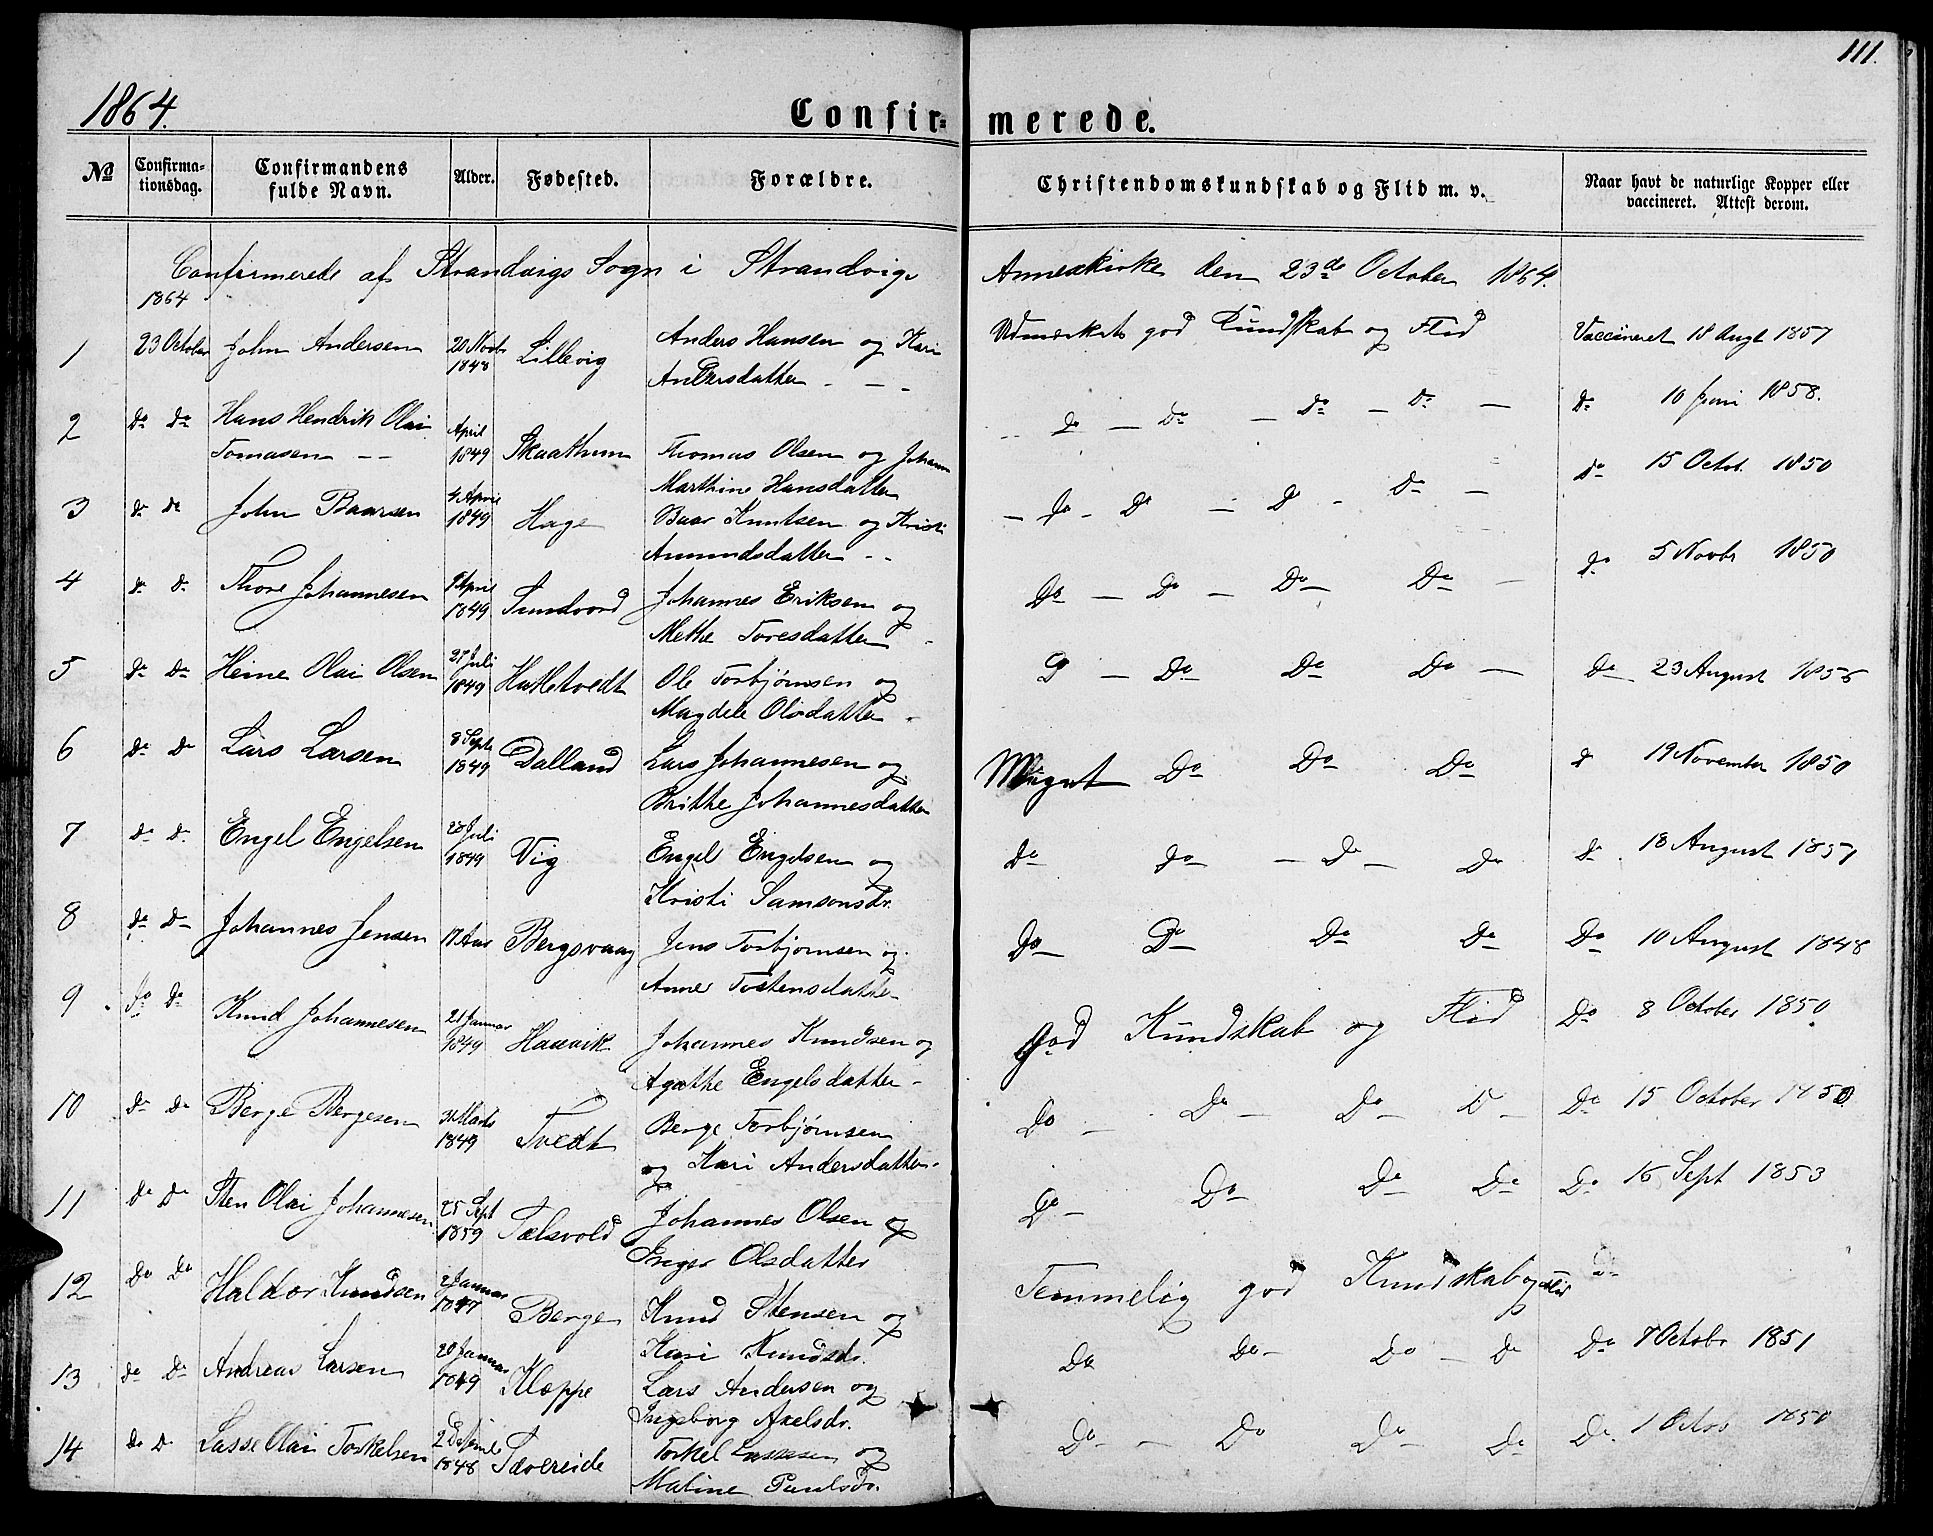 111.
1864.
Confirmerede.
No
Confirmationsdag.
Confirmandens fulde Navn.
Alder.
Fødested.
Forældre.
Christendomskundskab og Flid m. v.
Naar havt de naturlige Kopper eller vaccineret. Attest derom.
Confirmerede af Strandvigs Sogn i Strandvigs Annexkirke den 23de October 1864.
1864
1 23 October John Andersen 20 Novbr 1848 Lillevig Anders Hansen og Kari Andersdatter - - - Udmærket god Kundskab og Flid Vaccineret 18 Augt 1857
2 Do Do Hans Hendrik Olai Tomasen - - April 1849 Skaathun Thomas Olsen og Johanne Marthine Hansdatter Do - Do - Do - Do - Do 10 Juni 1858.
3 Do Do John Baarsen 4 April 1849 Hage Baar Knutsen og Kristi Amundsdatter - - - Do - Do - Do - Do - Do 15 Octob. 1850
4 Do Do Thore Johannesen April 1849 Sundvord Johannes Eriksen og Methe Toresdatter - Do - Do - Do - Do - Do 5 Novbr 1850
5 Do Do Heine Olai Olsen 27 Juli 1849 Hatletvedt Ole Torbjørnsen og Magdele Olsdatter - Do - Do Do Do - Do 23 August
6 Do Do Lars Larsen 8 Septr 1849 Dalland Lars Johannesen og Britthe Johannesdatter Meget Do Do Do Do 19 November 1850
7 Do Do Engel Engelsen 28 Juli 1849 Vig Engel Engelsen og Kristi Samsonsdr. Do Do - Do - Do Do 18 August 1857
8 Do Do Johannes Jensen Bergsvaag Jens Torbjørnsen og Anne Tostensdatter Do Do Do Do Do 10 August 1848
9 Do Do Knud Johannesen 21 Januar 1849 Haavik Johannes Knudsen og Agathe Engelsdatter - God Kundskab og Flid Do 8 October 1850
10 Do Do Berge Bergesen 31 Marts 1849 Tvedt Berge Torbjørnsen og Kari Andersdatter - Do - Do - Do - Do - Do 15 October 1850
11 Do Do Sten Olai Johannesen 25 Sept 1859 Sælsvold Johannes Olsen og Inger Olsdatter Do - Do Do Do Do 16 Sept 1853
12 Do Do Haldor Knudsen 2 Januar 1847 Berge Knud Stensen og Kari Knudsdr. Temmelig god Kundskab og Flid Do
13 Do Do Andreas Larsen 20 Januar 1849 Kleppe Lars Andersen og Ingeborg Axelsdr. Do Do - Do - Do Do 7 Octobr 1851
14 Do Do Lasse Olai Torkelsen 1848 Sævereide Torkel Lassesen og Maline Paulsdr. Do - Do Do - Do Do. 1 1850